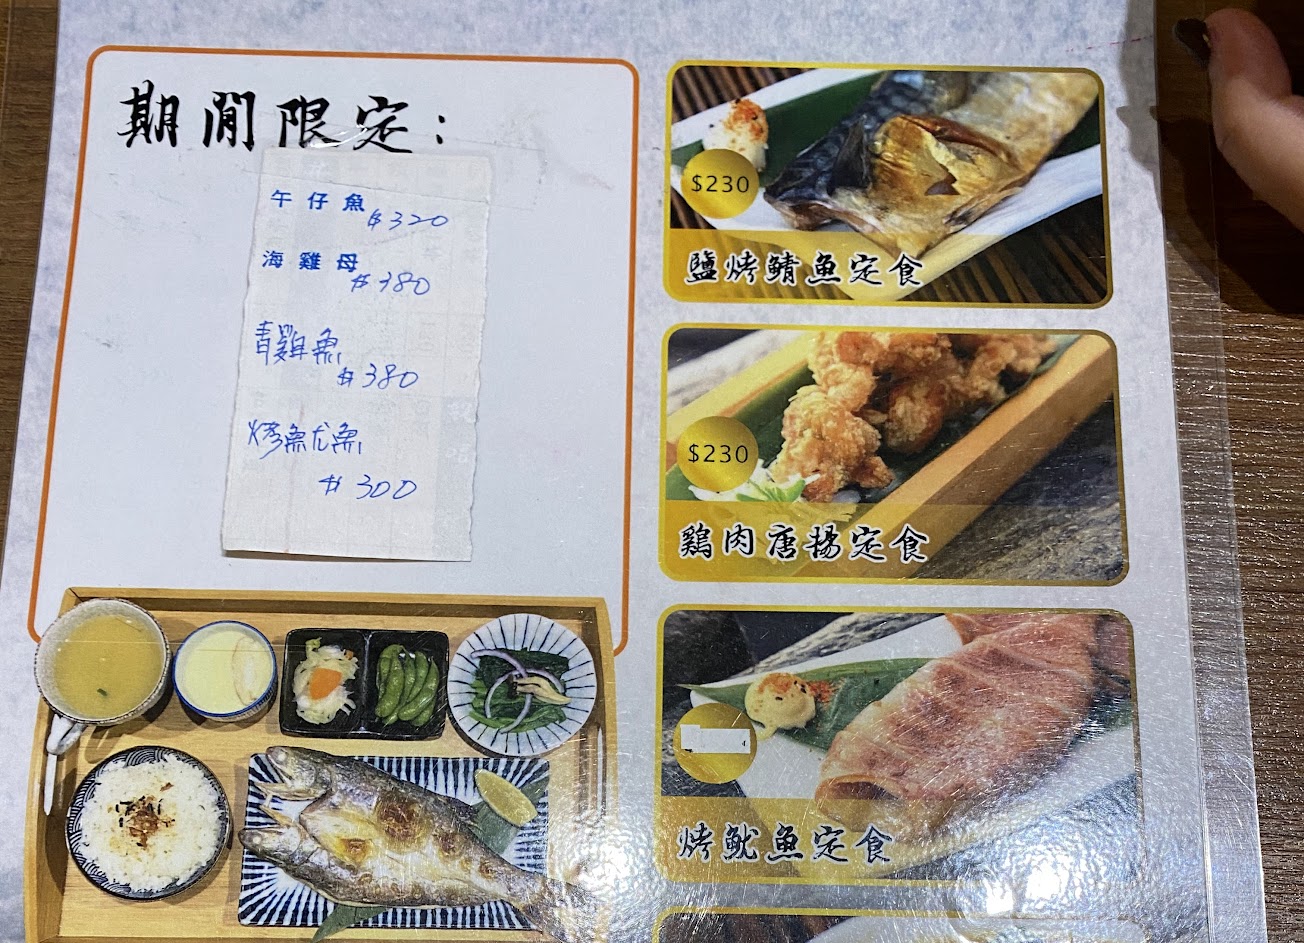 期間限定:
午仔魚
$320
海雞母
$380
青雞魚
$380
烤魷魚
$300
$230
鹽烤鯖魚定食
$230
鶏肉唐揚定食
烤魷魚定食